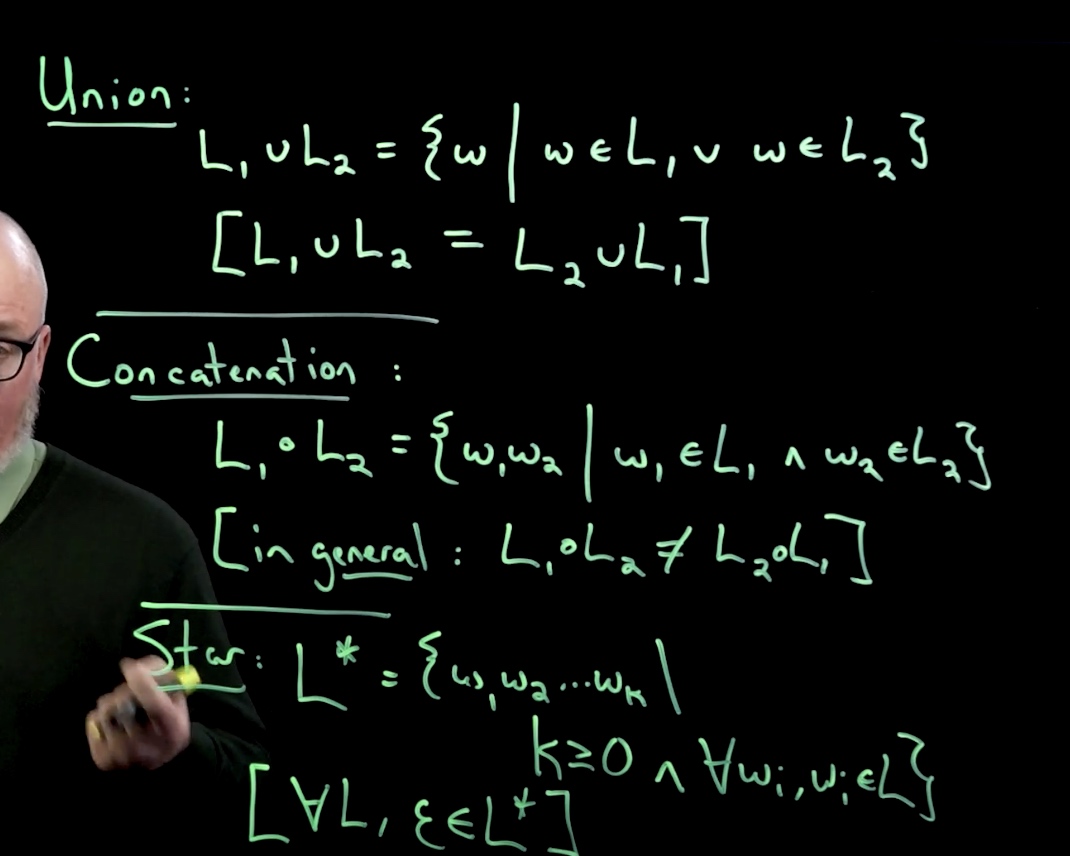 Union:
L₁ ∪ L₂ = {w | w ∈ L₁ ∨ w ∈ L₂}
[L₁ ∪ L₂ = L₂ ∪ L₁]
Concatenation :
L₁ ∘ L₂ = {w₁w₂ | w₁ ∈ L₁ ∧ w₂ ∈ L₂}
[in general : L₁∘L₂ ≠ L₂∘L₁]
Star: L* = {w₁w₂...wₖ |
k≥0 ∧ ∀wᵢ, wᵢ∈L}
[∀L, ε∈L*]